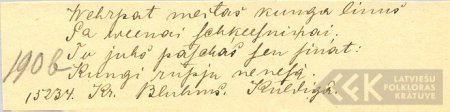 Wehrpat meitas kunga linus
Pa weenai schkeesniņai.
To juhs paschas sen sinat:
1906
Kungi rūpju nenesa.
15234. Kr. Bluhms. Kuldīgā.
LATVIEŠU
FOLKLORAS
KRĀTUVE